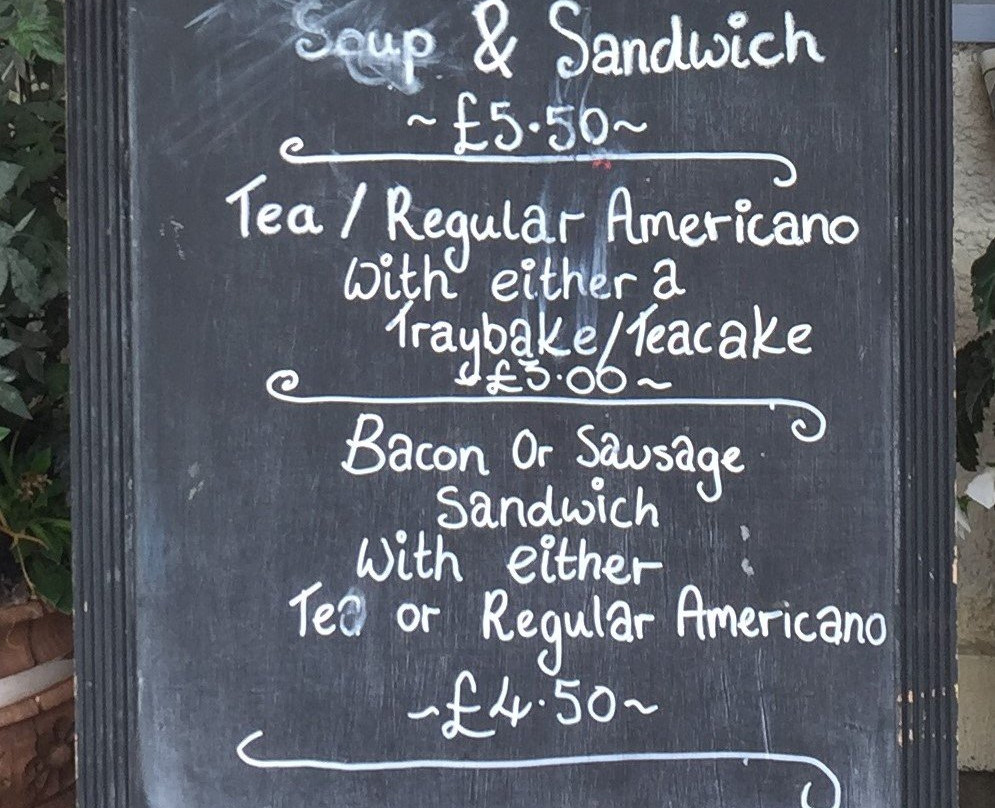 Soup & Sandwich
~£5.50~
Tea / Regular Americano
with either a
Traybake/Teacake
~£3.00~
Bacon Or Sausage
Sandwich
With either
Tea or Regular Americano
~£4.50~